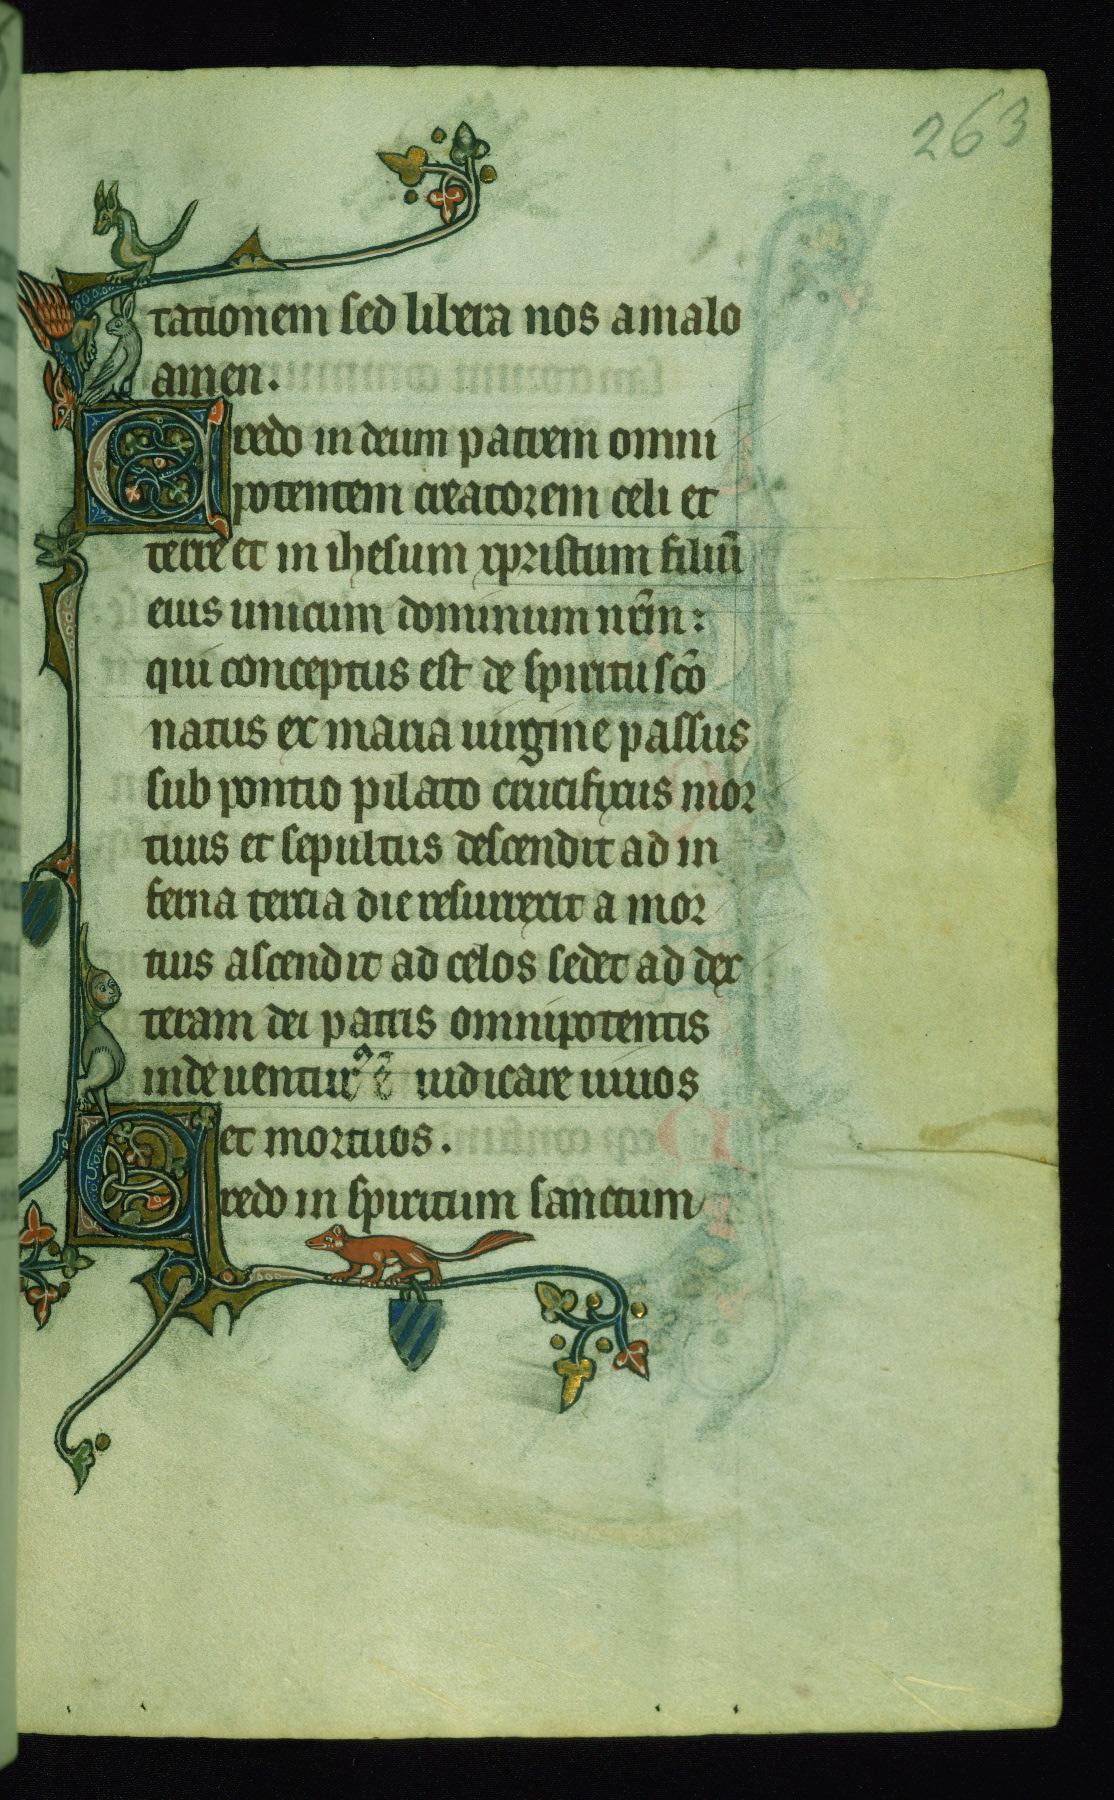 263
tationem sed libera nos amalo
amen.
Credo in deum patrem omni
potentem creatorem celi et
terre et in ihesum xpristum filiū
eius unicum dominum nr̄m:
qui conceptus est de spiritu sc̄o
natus ex maria uirgine passus
sub pontio pilato crucifixus mor
tuus et sepultus descendit ad in
ferna tercia die resurrexit a mor
tuis ascendit ad celos sedet ad dex
teram dei patris omnipotentis
inde uentur iudicare uiuos
et mortuos.
Credo in spiritum sanctum